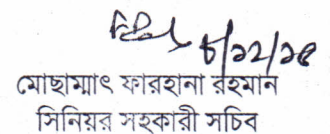 ৮/১২/১৫
মোছাম্মাৎ ফারহানা রহমান
সিনিয়র সহকারী সচিব